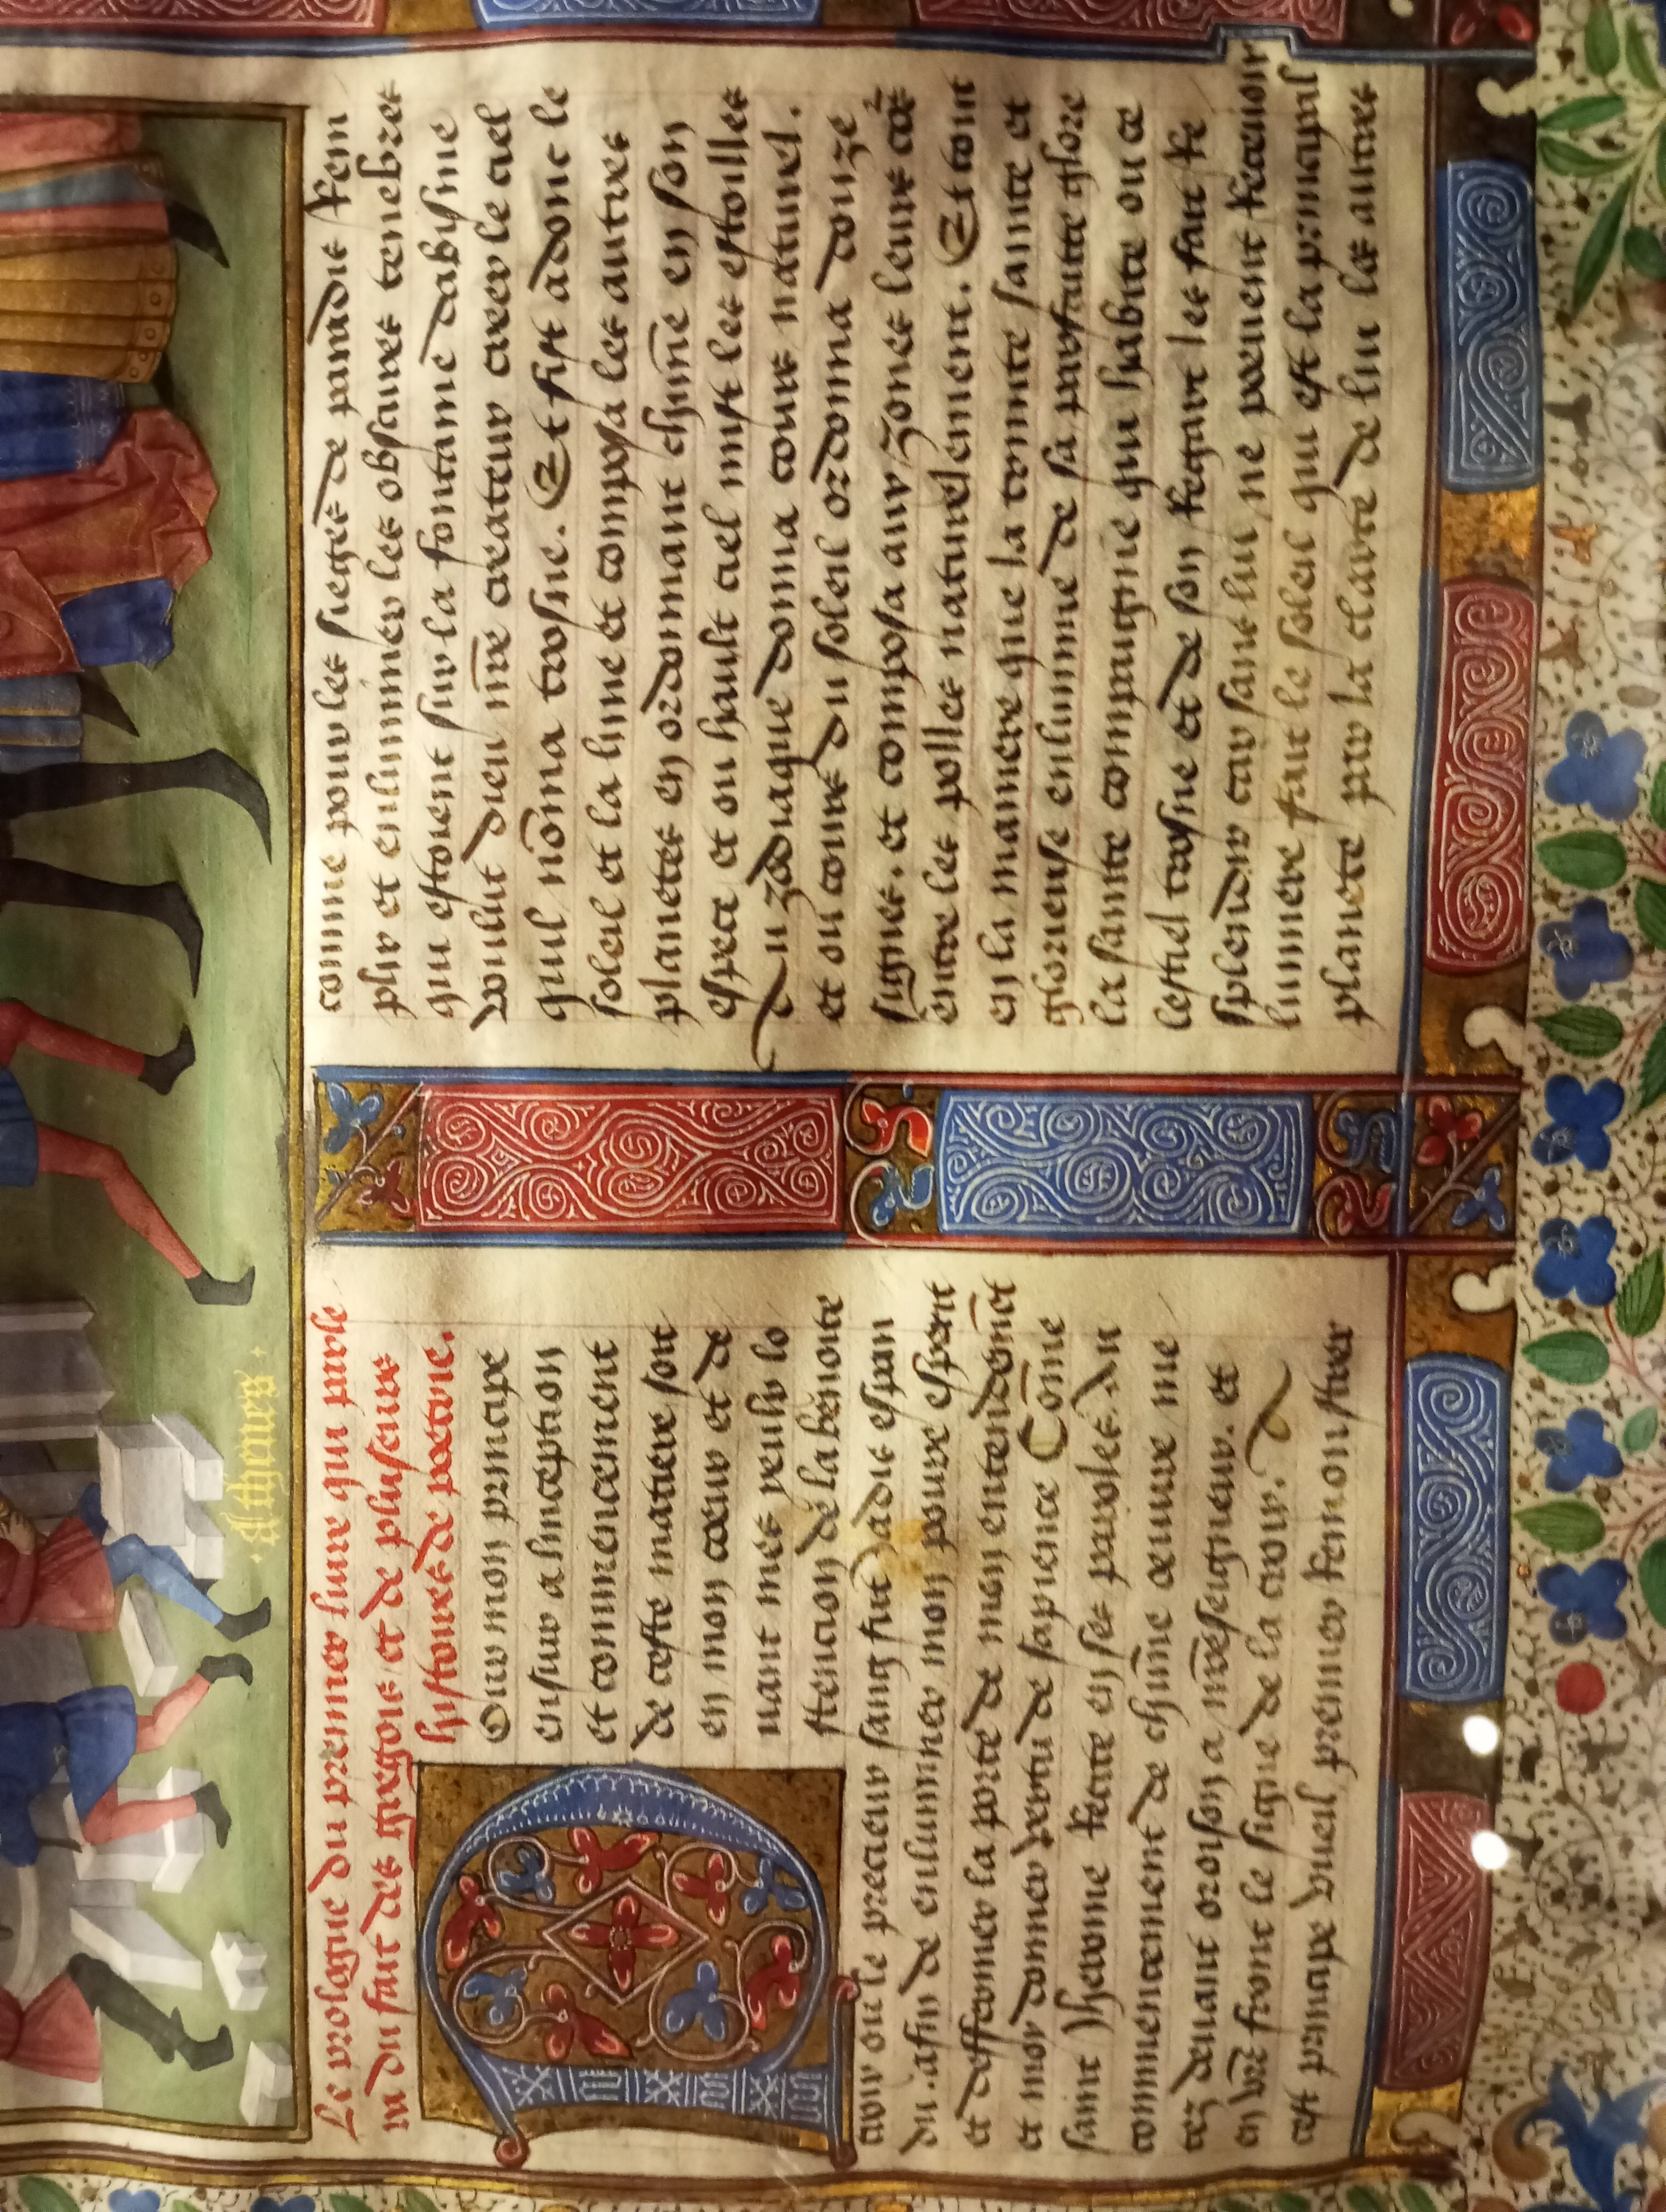 Athenes
Le prologue du premier liure qui parle
du fait des gregois et de pluseurs
histoires de poetrie.
Pour mon principe
ensuir a linception
et commencement
de ceste matiere sont
en mon coeur et de
uant mes yeulx lo
stencion de la benoite
croix ou le precieux sang fut iadis espan
du. afin de enluminer mon poure esperit
et deffermer la porte de mon entendemēt
et moy donner vertu de sapience Cōme
saint Iherome recite en ses paroles. Au
commencement de chūne oeuure me
tez deuant oroison a nr̄eseigneur. et
en vr̄e front le signe de la croix. A
cest principe vueil premier remonstrer
comme pour les sieges de paradis rem
plir et enluminer les obscures tenebres
qui estoient sur la fontaine dabisme
voulut dieu nr̄e createur creer le ciel
quil nōma trosne. Et fist adont le
soleil et la lune et composa les autres
planettes en ordonnant chūne en son
espece et ou hault ciel mist les estoilles
Au zodiaque donna cours naturel.
et ou cours du soleil ordonna douze
signes. et composa aux zones leurs co͂s
entre les polles naturelement. Et tout
en la maniere que la trinite sainte et
glorieuse enlumine de sa parfaitte glore
la sainte compaignie qui habite ou ce
lestiel trosne et de son regart les fait re
splendir car sans lui ne peeuent receuoir
lumiere fait le soleil qui est la principal
planette par la clarte de lui les autres